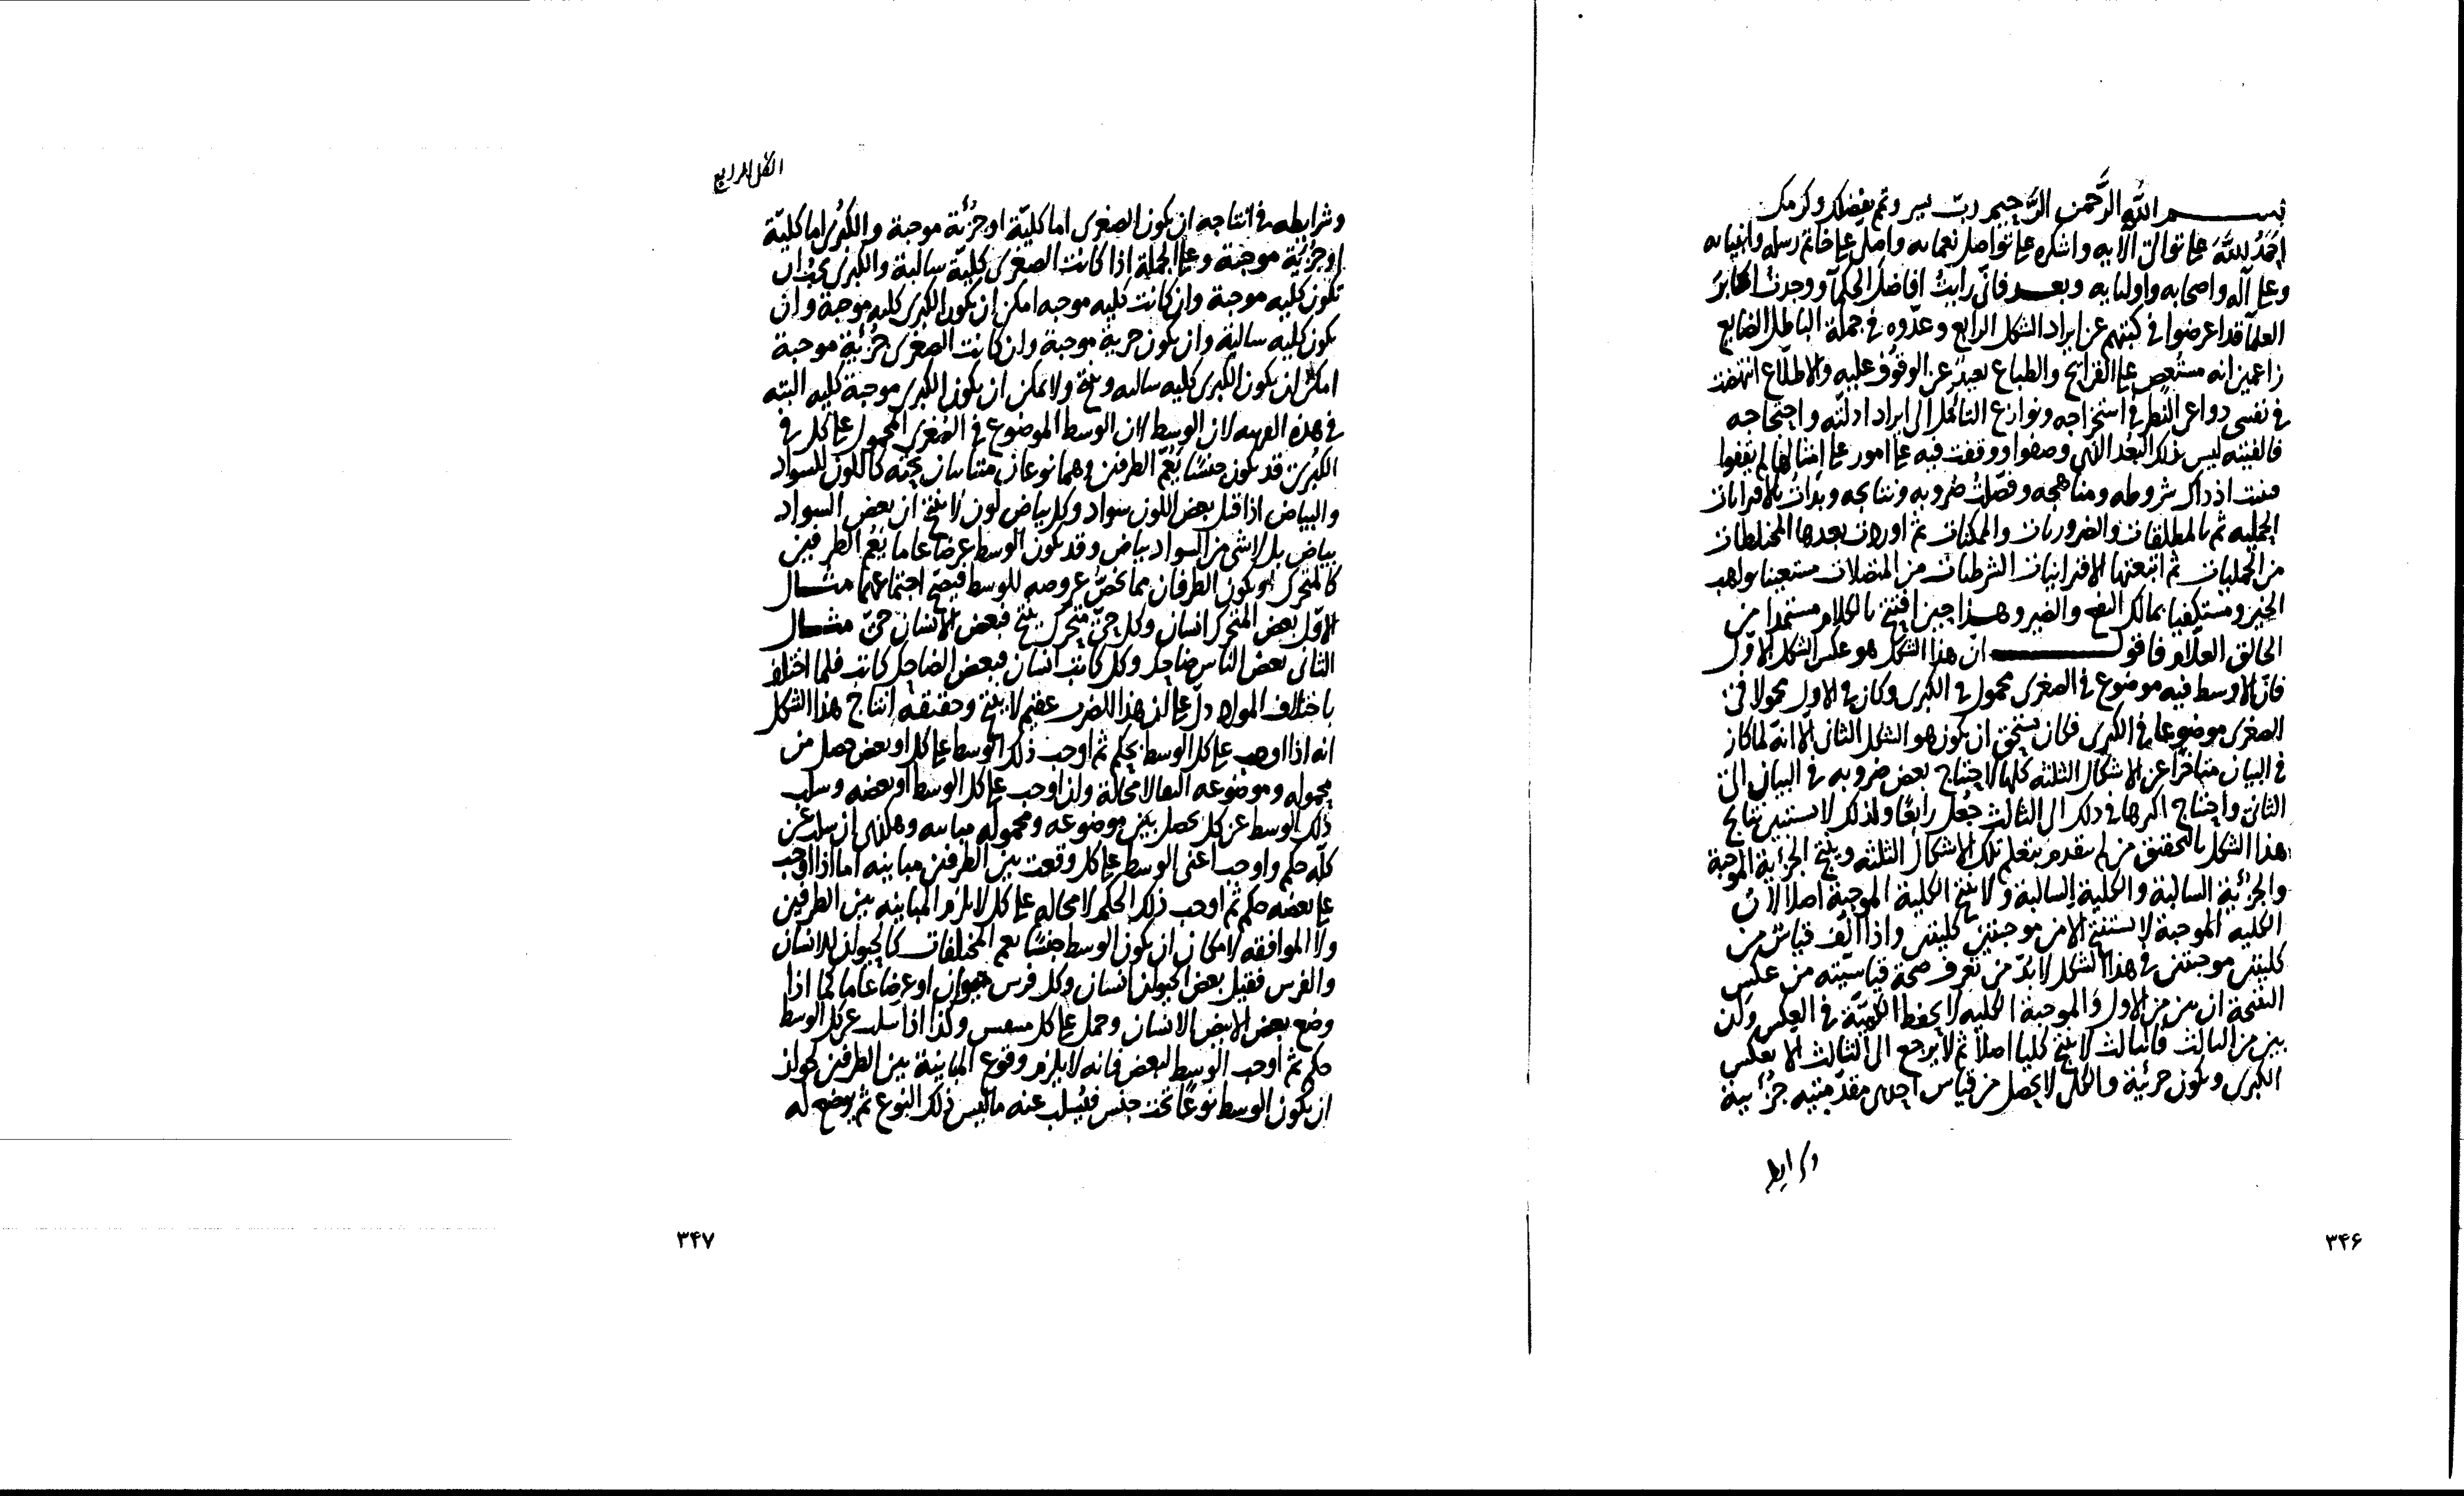 بسم الله الرحمن الرحيم رب يسر وتمم بفضلك وكرمك
احمد لله على توالي آلائه واشكره على تواصل نعمائه واصلي على خاتم رسله وانبيائه
وعلى آله واصحابه واوليائه وبعد فاني رأيت افاضل الحكمآ ووجدت اكابر
العلمآ قد اعرضوا في كتبهم عن ايراد الشكل الرابع وعدّوه في جملة الباطل الضايع
زاعمين انه مستعص على القرايح والطباع بعيد عن الوقوف عليه والاطلاع انتهضت
في نفسي دواعي النظر في استخراجه ونوازع التأمل الى ايراد ادلته واحتجاجه
فالفيته ليس ذلك البعد الذي وصفوا ووقفت فيه على امور على امثالها لم يقفوا
فبينت اذ ذاك شروطه ومناهجه وفصلت ضروبه ونتايجه وبدأت بالاقترانيات
الحمليه ثم بالمطلقات والضروريات والممكنات ثم اوردت بعدها المختلطات
من الحمليات ثم اتبعتها الاقترانيات الشرطيات من المتصلات مستعينا بواهب
الخير ومستكفيا بمالك النفع والضير وهذا حين افتتح بالكلام مستمدا من
الخالق العلام فاقول ان هذا الشكل هو عكس الشكل الاول
فان الاوسط فيه موضوع في الصغرى محمول في الكبرى وكان في الاول محمولا في
الصغرى موضوعا في الكبرى فكان يستحق ان يكون هو الشكل الثاني الا انه لما كان
في البيان متأخرا عن الاشكال الثلثة كلها لاحتياج بعض ضروبه في البيان الى
الثاني واحتياج اكثرها في ذلك الى الثالث جُعل رابعًا ولذلك لا يستبين نتايج
هذا الشكل بالتحقيق من لم يتقدم بتعلم تلك الاشكال الثلثه وينتج الجزئية الموجبة
والجزئية السالبة والكلية السالبة ولا ينتج الكلية الموجبة اصلا لان
الكلية الموجبة لا تستنتج الا من موجبتين كليتين واذا الّف قياس من
كليتين موجبتين في هذا الشكل لا بدّ من تعرف صحة قياسيته من عكس
النتيجة ان بين من الاول والموجبة الكليه لا يحفظ الكمية في العكس ولئن
بين من الثالث فالثالث لا ينتج كليا اصلا ثم لا يرجع الى الثالث الا بعكس
الكبرى ويكون جزئية والكلي لا يحصل من قياس احدى مقدمتيه جزئية
وشرايطه
٣٤۶
الشكل الرابع
وشرايطه في انتاجه ان يكون الصغرى اما كليّة او جزئية موجبة والكبرى اما كليّة
او جزئية موجبة وعلى الجملة اذا كانت الصغرى كليّة سالبة والكبرى يجب ان
تكون كليه موجبة وان كانت كليه موجبه امكن ان يكون الكبرى كليه موجبة وان
يكون كليه سالبة وان يكون جزئية موجبة وان كانت الصغرى جزئية موجبة
امكن ان يكون الكبرى كليه سالبه وينتج ولا يمكن ان يكون الكبرى موجبة كليه البته
في هذه لان الوسط لان الوسط الموضوع في الصغرى المحمول على كل في
الكبرى قد يكون جنسًا يعُمّ الطرفين وهما نوعان متباينان تحته كاللون للسواد
والبياض اذا قيل بعض اللون سواد وكل بياض لون لا ينتج ان بعض السواد
بياض بل لا شئ من السواد بياض وقد يكون الوسط عرضا عاما يعُم الطرفين
كالمتحرك او يكون الطرفان مما يخصّ عروضه للوسط فيصح اجتماعهما مثال
الاول بعض المتحرك انسان وكل حيّ متحرك ينتج فبعض الانسان حيّ مثال
الثاني بعض الناس ضاحك وكل كاتب انسان فبعض الضاحك كاتب فلما اختلف
باختلاف المواد دلّ على ان هذا الضرب عقيم لا ينتج وحقيقة انتاج هذا الشكل
انه اذا اوجب على كل الوسط بحكم ثم اوجب ذلك الوسط على كل او بعض حصل من
محموله وموضوعه التقا لا محالة وان اوجب على كل الوسط او بعضه وسلب
ذلك الوسط عن كل يحصل بين موضوعه ومحموله مباينه وهكذى ان سلب عن
كلّه حكم واوجب اعني الوسط على كل وقعت بين الطرفين مباينه اما اذا اوجب
على بعضه حكم ثم اوجب ذلك الحكم لا محاله على كل لا يلزم المباينه بين الطرفين
ولا الموافقه لامكان ان يكون الوسط جنسًا يعم المختلفات كالحيوان للانسان
والفرس فقيل بعض الحيوان انسان وكل فرس حيوان او عرضا عاما كما اذا
وضع بعض الابيض الانسان وحمل على كل وكذا اذا سلب عن كل الوسط
حكم ثم اوجب الوسط لبعض فانه لا يلزم وقوع المباينة بين الطرفين لجواز
ان يكون الوسط نوعًا تحت جنس فيُسلب عنه ما ليس ذلك النوع ثم يوضع له
٣٤٧